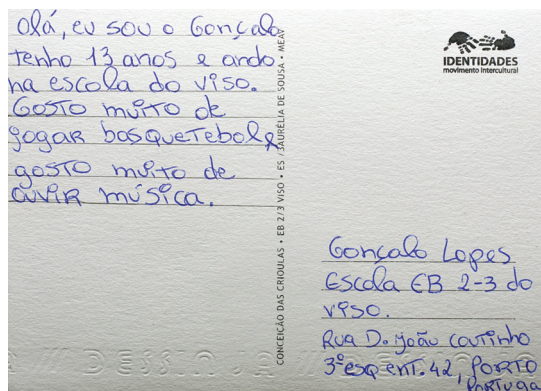 olá, eu sou o Gonçalo
tenho 13 anos e ando
na escola do viso.
Gosto muito de
jogar basquetebol e
gosto muito de
ouvir música.
CONCEIÇÃO DAS CRIOULAS • EB 2/3 VISO • ES / 3AURÉLIA DE SOUSA • MEAV
IDENTIDADES
movimento intercultural
Gonçalo Lopes
Escola EB 2-3 do
viso.
Rua D. João Coutinho
3º esq ent. 42, PORTO
Portuga